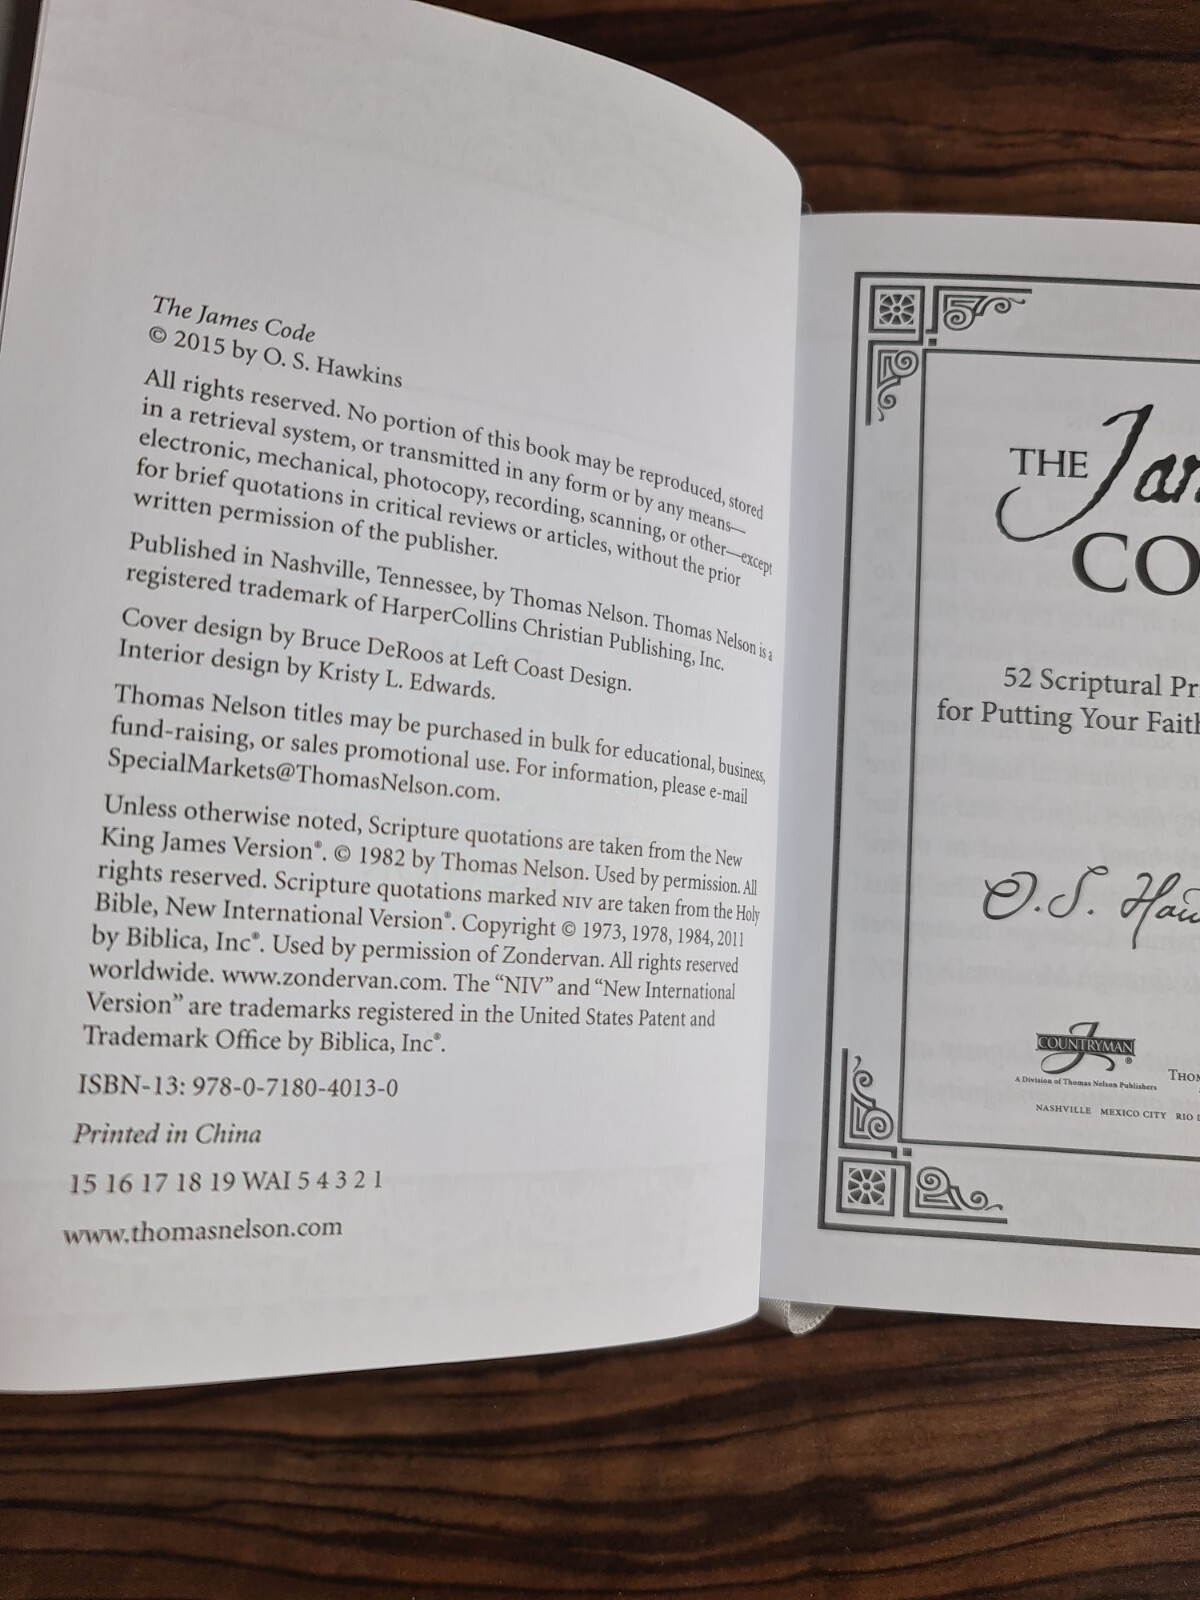 The James Code
© 2015 by O. S. Hawkins
All rights reserved. No portion of this book may be reproduced, stored
in a retrieval system, or transmitted in any form or by any means—
electronic, mechanical, photocopy, recording, scanning, or other—except
for brief quotations in critical reviews or articles, without the prior
written permission of the publisher.
Published in Nashville, Tennessee, by Thomas Nelson. Thomas Nelson is a
registered trademark of HarperCollins Christian Publishing, Inc.
Cover design by Bruce DeRoos at Left Coast Design.
Interior design by Kristy L. Edwards.
Thomas Nelson titles may be purchased in bulk for educational, business,
fund-raising, or sales promotional use. For information, please e-mail
SpecialMarkets@ThomasNelson.com.
Unless otherwise noted, Scripture quotations are taken from the New
King James Version®. © 1982 by Thomas Nelson. Used by permission. All
rights reserved. Scripture quotations marked NIV are taken from the Holy
Bible, New International Version®. Copyright © 1973, 1978, 1984, 2011
by Biblica, Inc®. Used by permission of Zondervan. All rights reserved
worldwide. www.zondervan.com. The “NIV” and “New International
Version” are trademarks registered in the United States Patent and
Trademark Office by Biblica, Inc®.
ISBN-13: 978-0-7180-4013-0
Printed in China
15 16 17 18 19 WAI 5 4 3 2 1
www.thomasnelson.com
THE
52 Scriptural
for Putting Your Faith
O. S.
COUNTRYMAN®
A Division of Thomas Nelson Publishers
NASHVILLE MEXICO CITY RIO